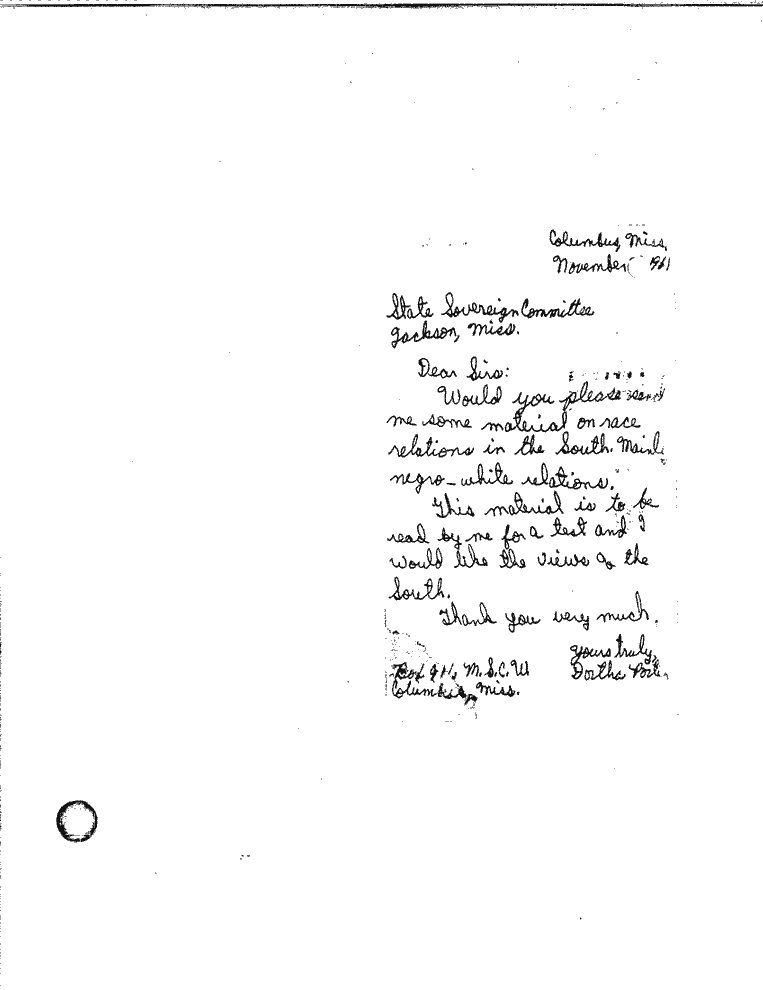 Columbus, Miss.
November 1961
State Sovereign Committee
Jackson, Miss.
Dear Sirs:
Would you please send
me some material on race
relations in the South. Mainly
negro-white relations.
This material is to be
read by me for a test and I
would like the views of the
South.
Thank you very much.
Yours truly,
Dortha
Box M.S.C.W
Columbus, Miss.